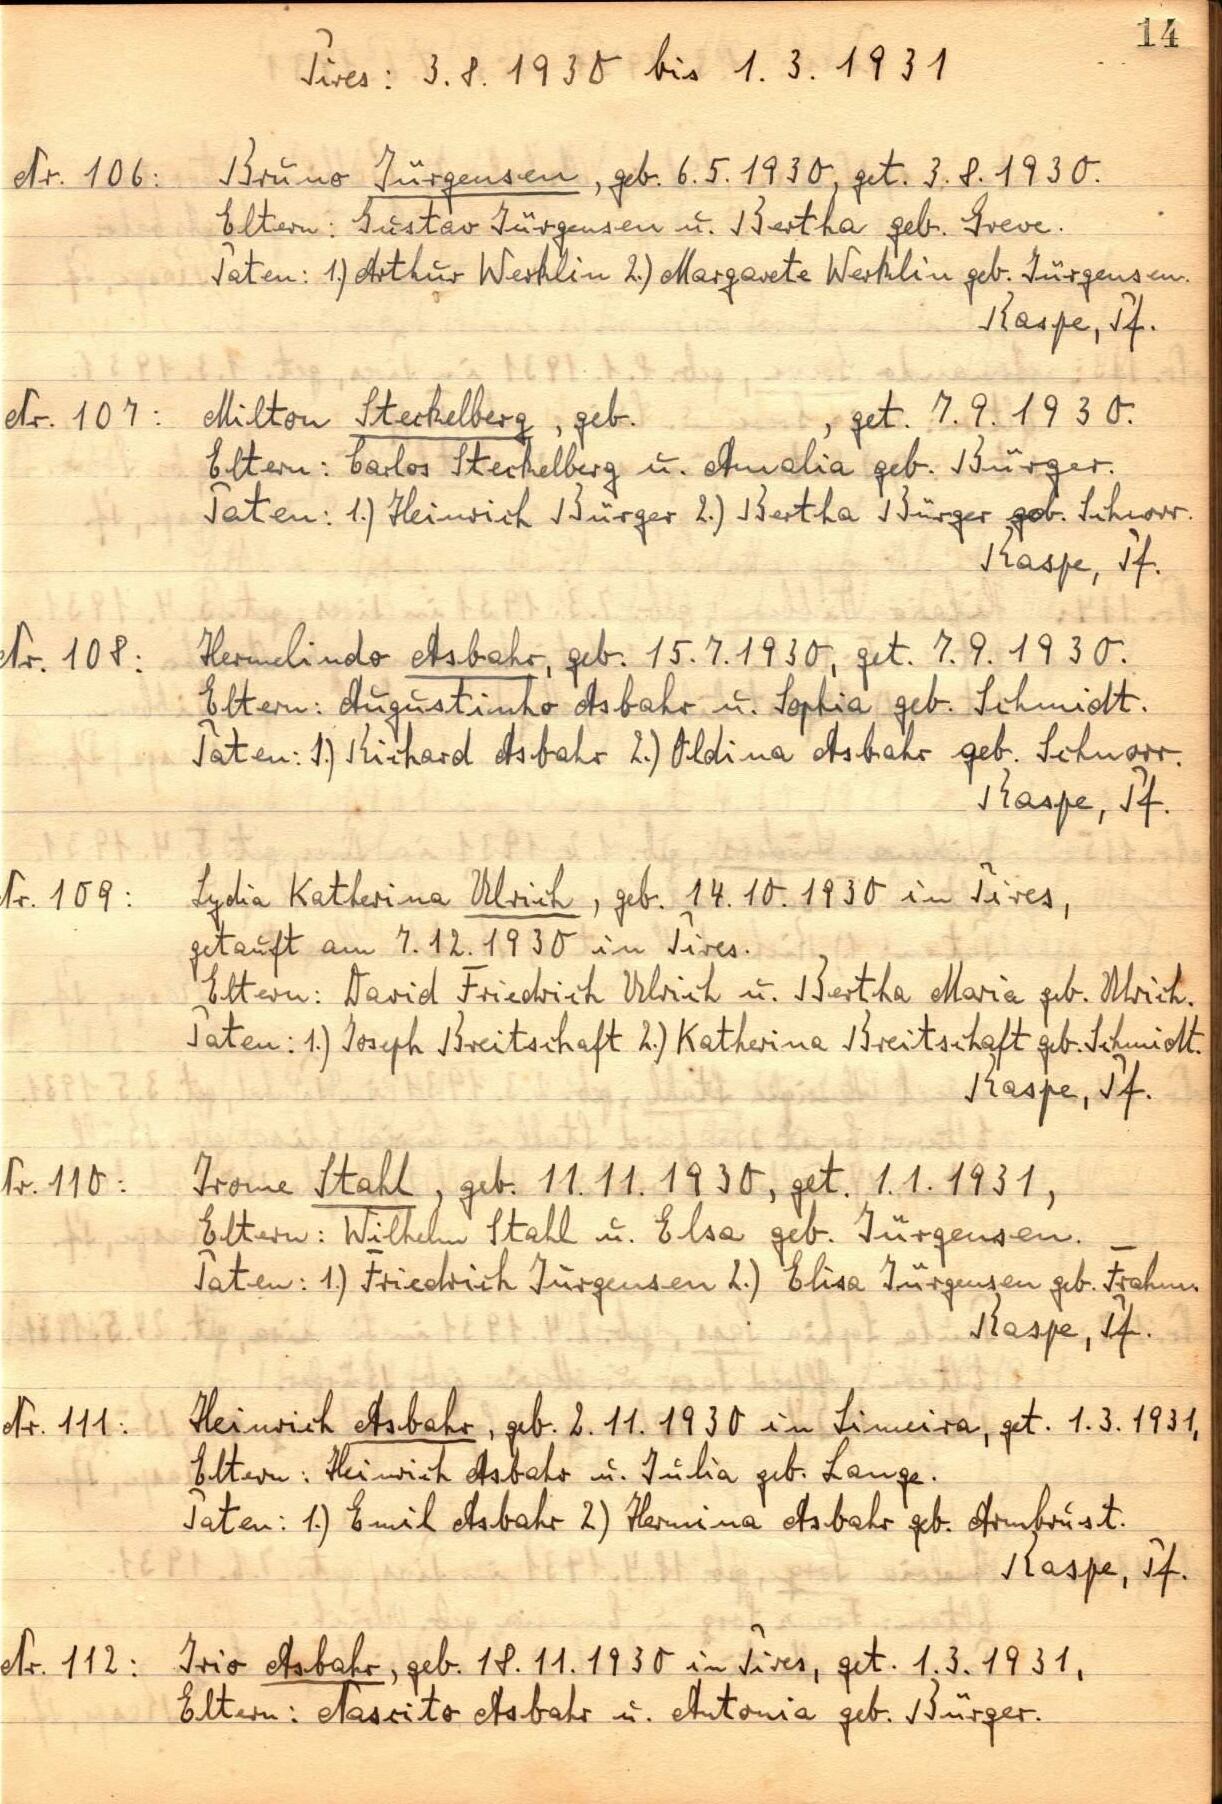 14
Pires: 3.8.1930 bis 1.3.1931
Nr. 106: Bruno Jürgensen, geb. 6.5.1930, get. 3.8.1930.
Eltern: Gustav Jürgensen u. Bertha geb. Greve.
Paten: 1.) Arthur Werklin 2.) Margarete Werklin geb. Jürgensen.
Kaspe, Pf.
Nr. 107: Milton Steckelberg, geb. , get. 7.9.1930.
Eltern: Carlos Steckelberg u. Amalia geb. Bürger.
Paten: 1.) Heinrich Bürger 2.) Bertha Bürger geb. Schnorr.
Kaspe, Pf.
Nr. 108: Hermelindo Asbahr, geb. 15.7.1930, get. 7.9.1930.
Eltern: Augustinho Asbahr u. Sophia geb. Schmidt.
Paten: 1.) Richard Asbahr 2.) Oldina Asbahr geb. Schnorr.
Kaspe, Pf.
Nr. 109: Lydia Katherina Ulrich, geb. 14.10.1930 in Pires,
getauft am 7.12.1930 in Pires.
Eltern: David Friedrich Ulrich u. Bertha Maria geb. Ulrich.
Paten: 1.) Joseph Breitschaft 2.) Katherina Breitschaft geb. Schmidt.
Kaspe, Pf.
Nr. 110: Irome Stahl, geb. 11.11.1930, get. 1.1.1931,
Eltern: Wilhelm Stahl u. Elsa geb. Jürgensen.
Paten: 1.) Friedrich Jürgensen 2.) Elisa Jürgensen geb. Frahm.
Kaspe, Pf.
Nr. 111: Heinrich Asbahr, geb. 2.11.1930 in Limeira, get. 1.3.1931,
Eltern: Heinrich Asbahr u. Julia geb. Lange.
Paten: 1.) Emil Asbahr 2.) Hermina Asbahr geb. Armbrust.
Kaspe, Pf.
Nr. 112: Irio Asbahr, geb. 18.11.1930 in Pires, get. 1.3.1931,
Eltern: Nascito Asbahr u. Antonia geb. Bürger.